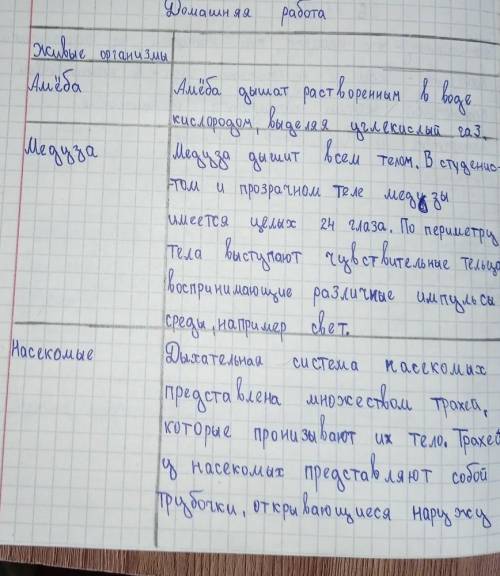 Домашняя работа
Живые организмы
Амёба Амёба дышат растворенным в воде
кислородом, выделяя углекислый газ.
Медуза Медуза дышит всем телом. В студенис-
-том и прозрачном теле медузы
имеется целых 24 глаза. По периметру
тела выступают чувствительные тельца
воспринимающие различные импульсы
среды, например свет.
Насекомые Дыхательная система насекомых
представлена множеством трахей,
которые пронизывают их тело. Трахеи
у насекомых представляют собой
трубочки, открывающиеся наружу